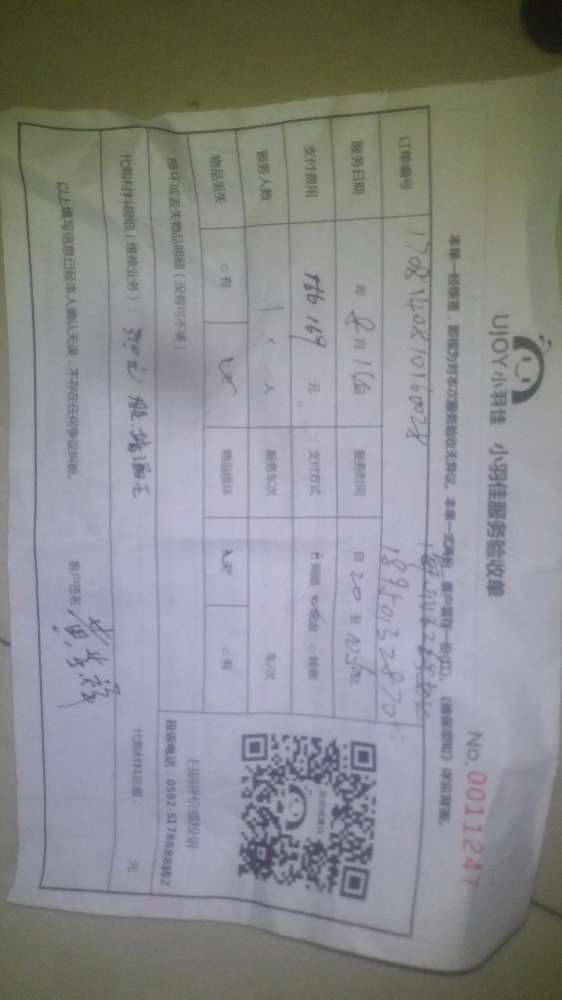 UJOY小羽佳 小羽佳服务验收单
No. 0011247
本单一经核签，即视为对本次服务验收无异议。本单一式两份，客户留存一份(红)。《维保须知》详见背面。
订单编号 1708140810160028
18950132870
服务日期 年 8 月 16 日 服务时间 自 20 至
支付费用 169 元 支付方式 网络 现金 转账
服务人数 1 人 服务车次 车/次
物品丢失 有 无 物品损坏 无 有
损坏或丢失物品明细（没有可不填）：
扫码评价或投诉
投诉电话：0592-5178888转2
代购材料明细（维修业务）： 代购材料总额： 元
以上填写信息已经本人确认无误，不存在任何争议纠纷。
客户签名